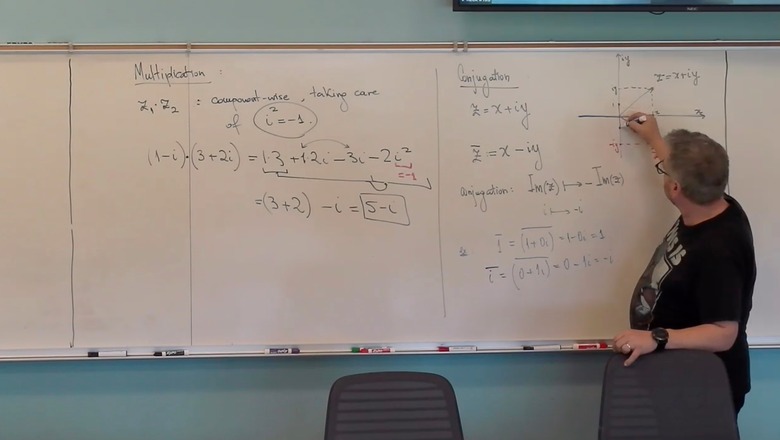 Multiplication :
z₁·z₂ : component-wise, taking care
of i² = -1.
(1-i)·(3+2i) = 1·3 + 12i - 3i - 2i²
= -1
= (3+2) - i = 5-i
Conjugation
z = x + iy
z̄ = x - iy
Conjugation: Im(z) ↦ - Im(z)
i ↦ -i
1̅ = \overline{(1+0i)} = 1-0i = 1
i̅ = \overline{(0+1i)} = 0 - 1i = -i
iy
z = x+iy
x
-y